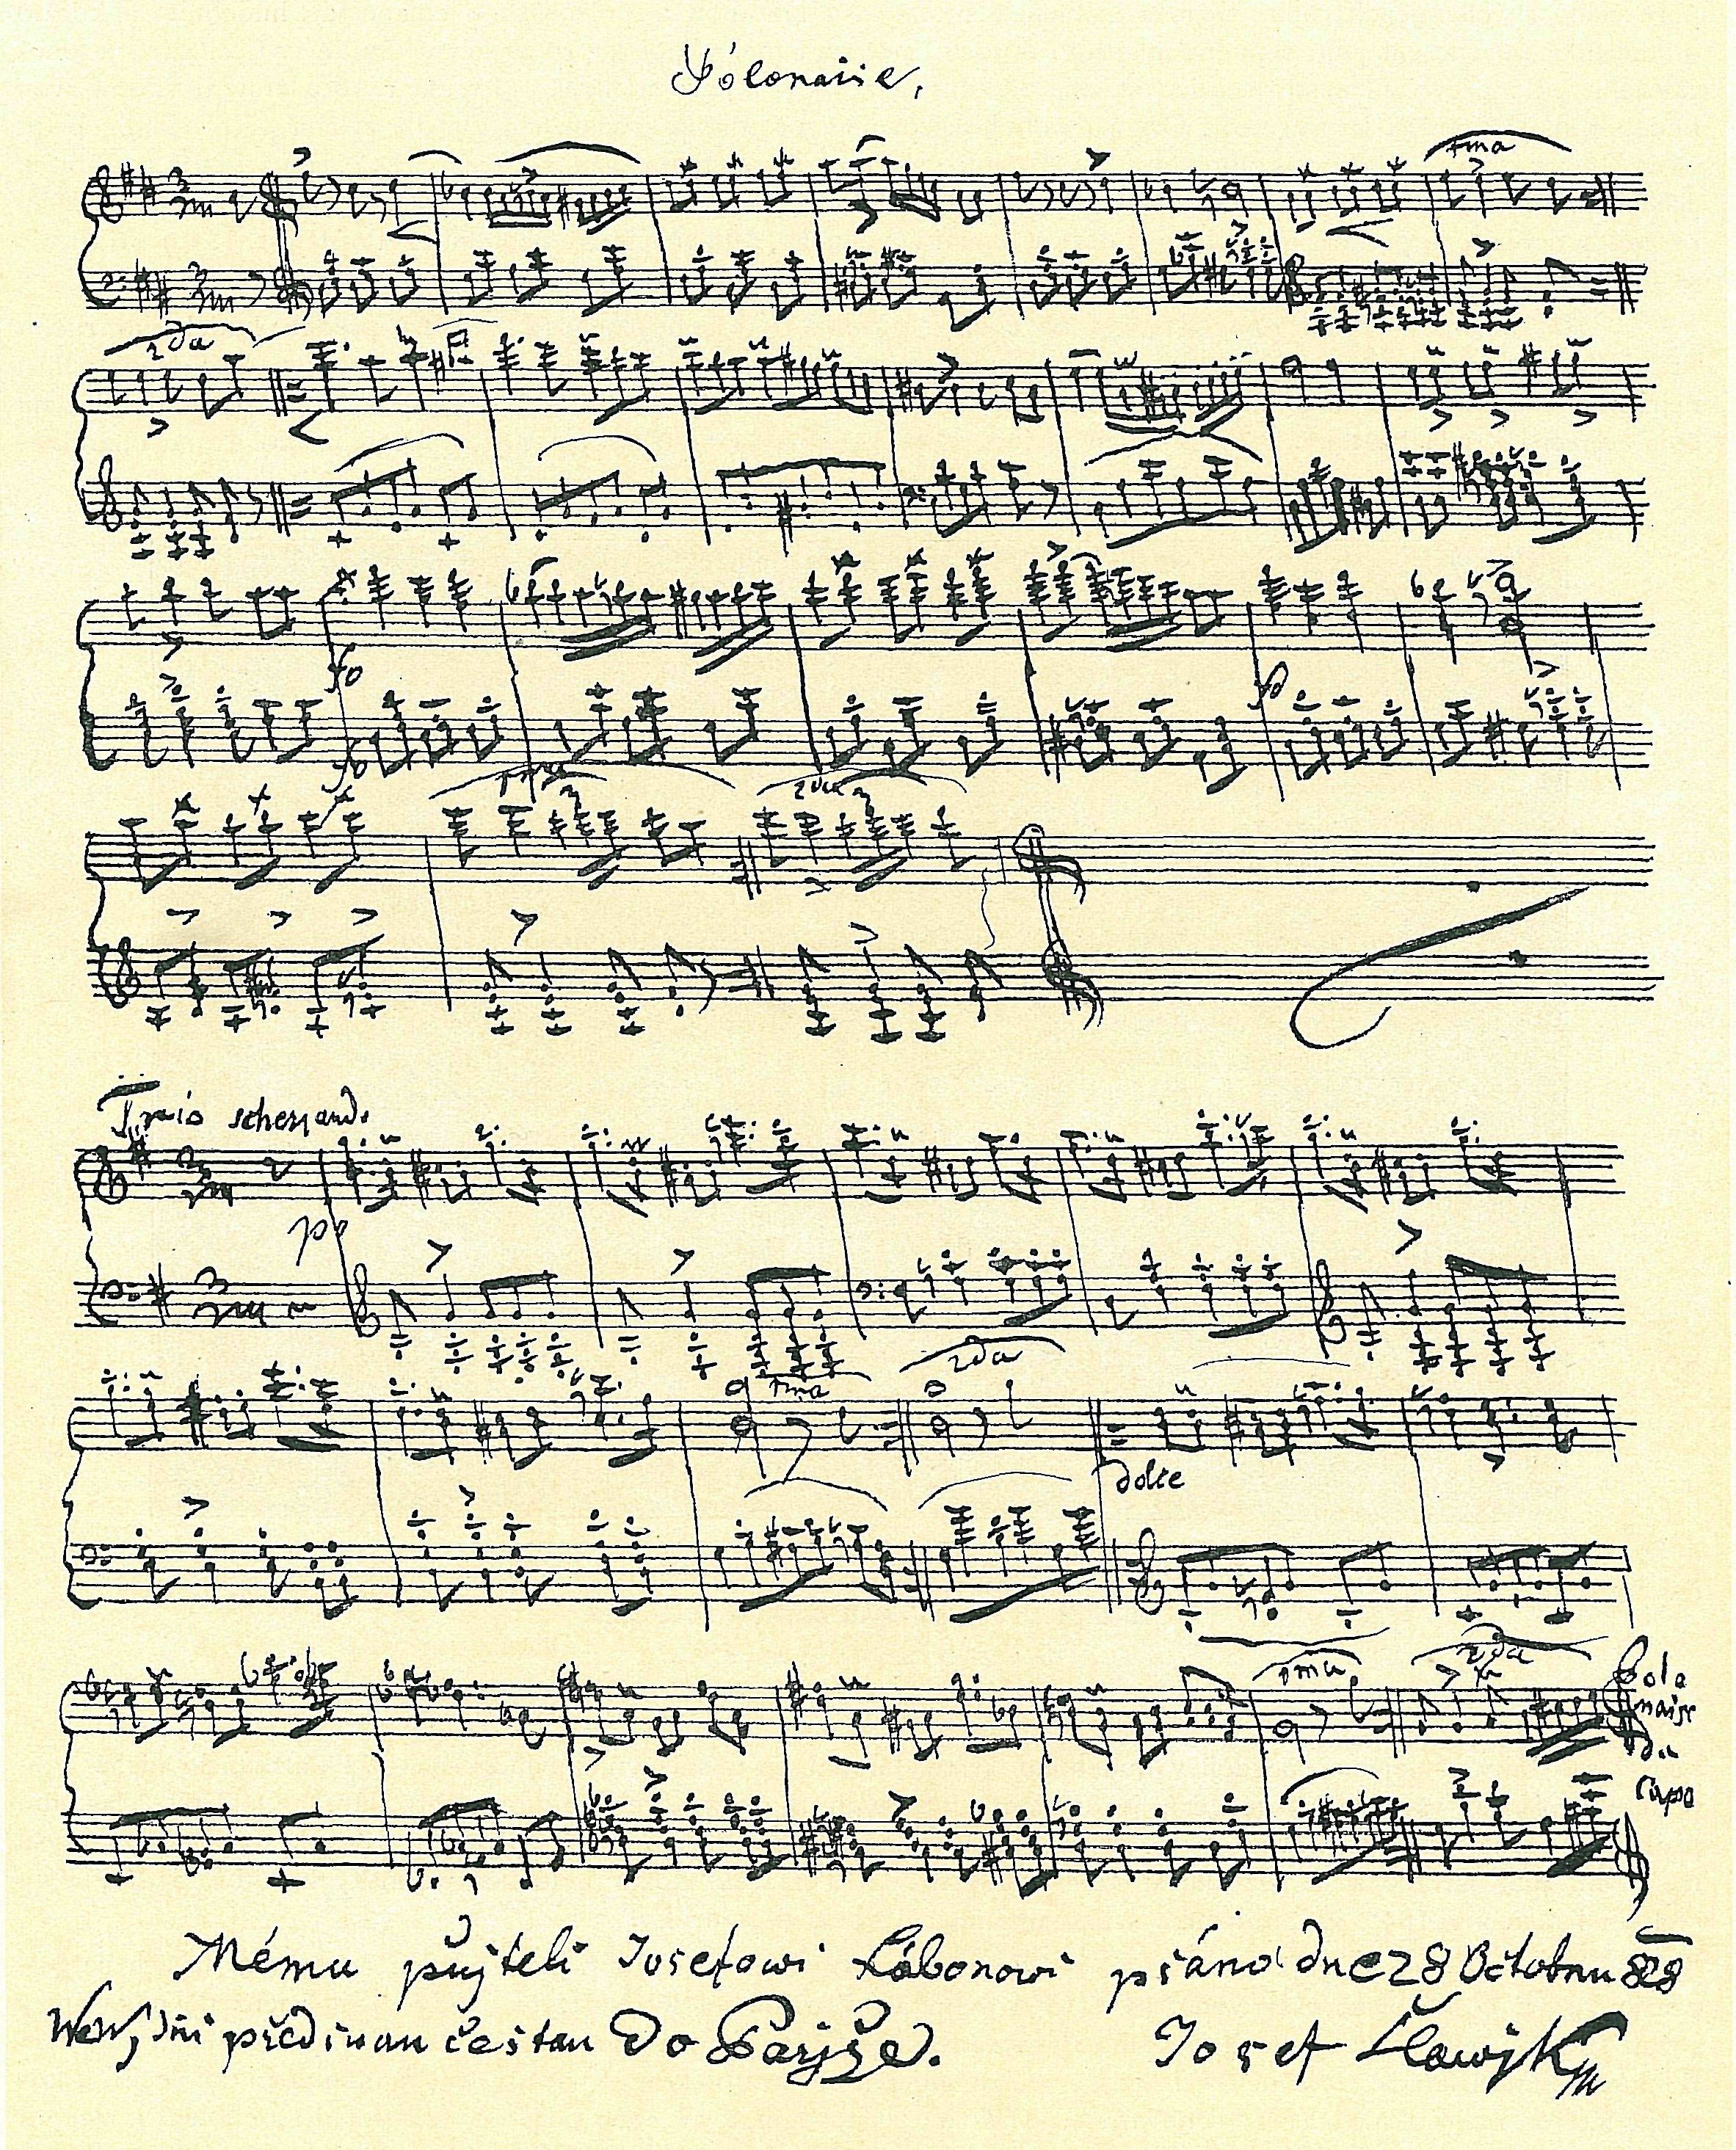 Polonaise,
1ma
2da
fo
fo
fo
1ma
2da
Trio scherzando
po
1ma
2da
dolce
1ma
2da
Polo
naise
da
capo
Mému přjteli Josefowi Lábonowi psáno dne 28 Octobru 828
We Wjdni před swau cestau do Pařjže.
Josef Slawjk